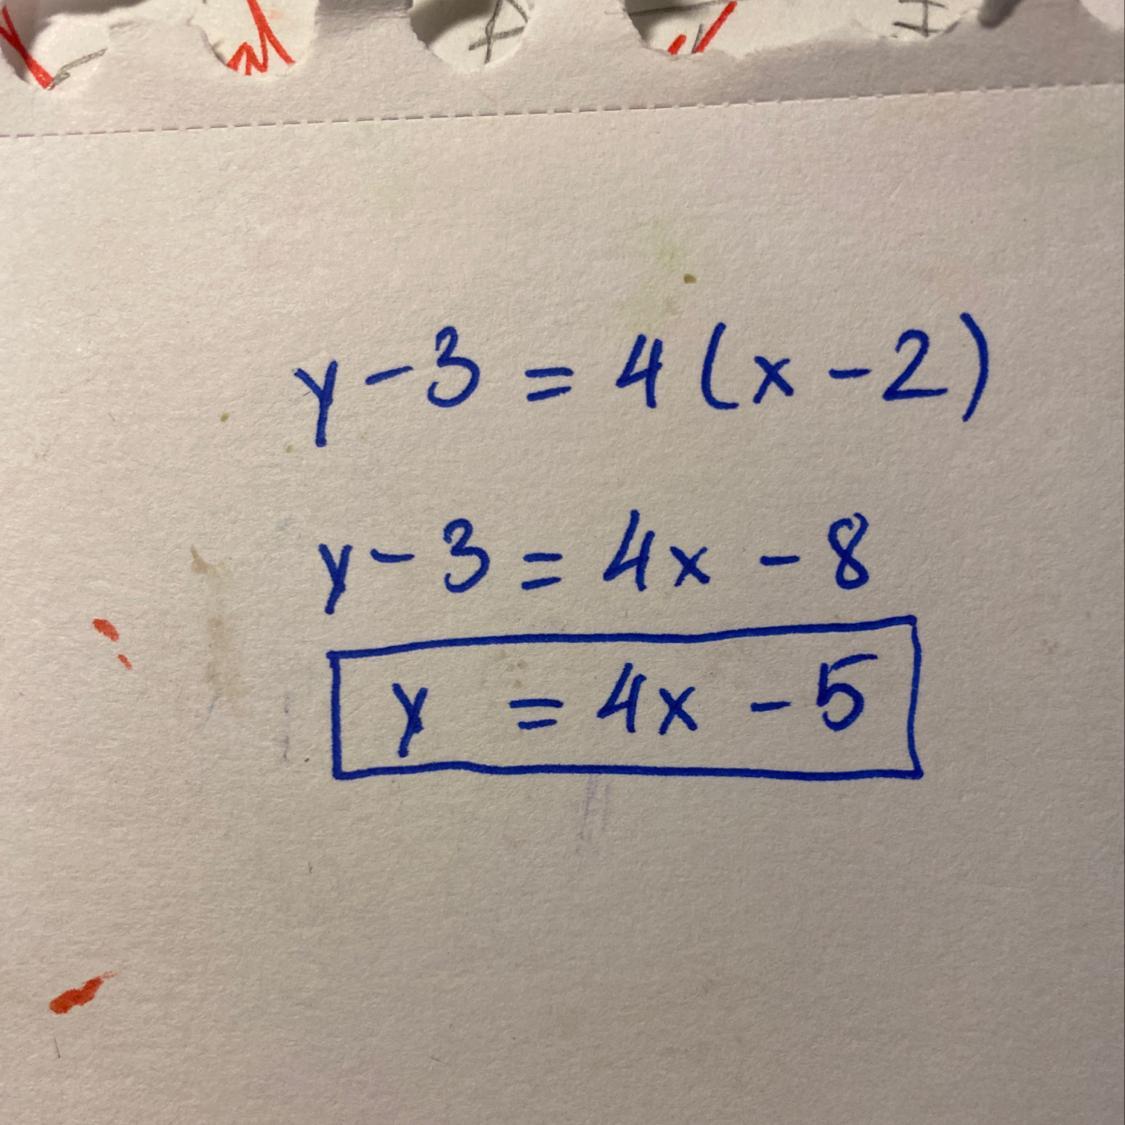 y - 3 = 4 (x - 2)
y - 3 = 4x - 8
y = 4x - 5